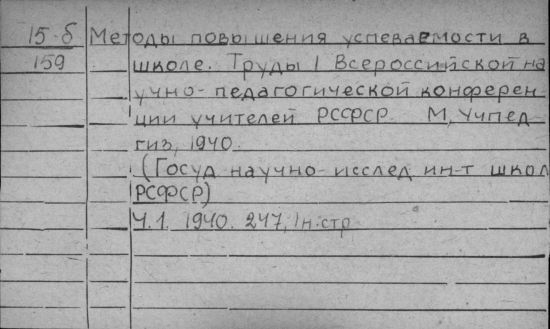 15-б Методы повышения успеваемости в
159 школе. Труды I Всероссийской на
учно-педагогической конферен
ции учителей РСФСР М, Учпед-
гиз, 1940.
(Госуд научно-исслед ин-т школ
РСФСР)
Ч.1. 1940. 247, 1н.стр